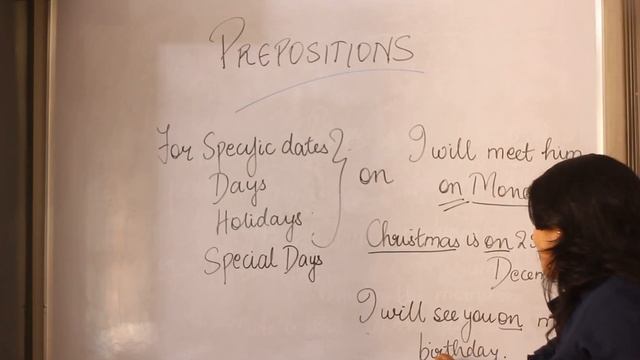 PREPOSITIONS
For Specific dates
Days
Holidays
Special Days
on
I will meet him
on
Christmas is on
I will see you on
birthday.